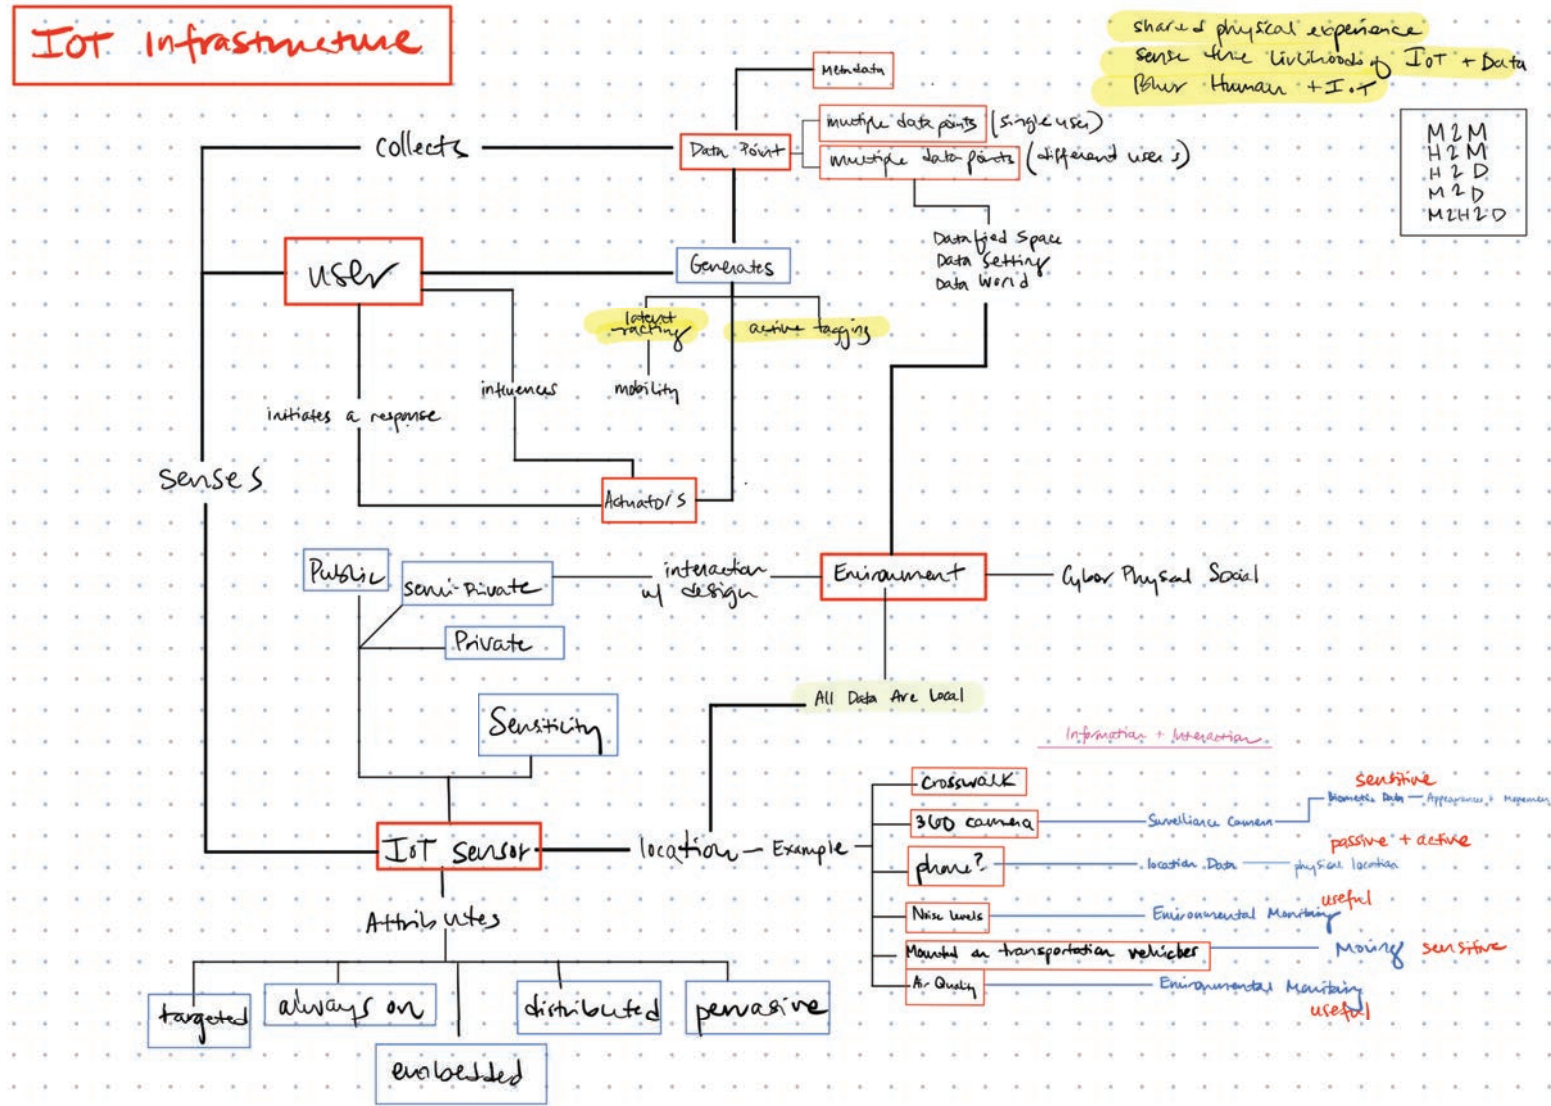 IoT Infrastructure
shared physical experience
sense the livlihoods of IoT + Data
Blur Human + IoT
M2M
H2M
H2D
M2D
M2H2D
Metadata
collects
Data Point
multiple data points (single user)
multiple data points (different users)
Datafied Space
Data Setting
Data World
user
Generates
latent
tracking
active tagging
mobility
influences
initiates a response
senses
Actuators
Public
Semi-Private
Private
interaction
w/ design
Environment
Cyber Physical Social
All Data Are Local
Sensiticity
Information + Interaction
IoT Sensor
location
Example
crosswalk
360 camera
Survelliance Camera
sensitive
Biometric Data
Appearances + Movement
phone?
location Data
passive + active
physical location
Noise Levels
Environmental Monitoring
useful
Mounted on transportation vehicles
Moving
sensitive
Air Quality
Environmental Monitoring
useful
Attributes
targeted
always on
embedded
distributed
pervasive